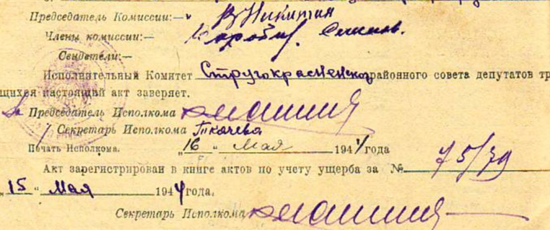 Председатель Комиссии:— В Никитин
Члены комиссии:—
Свидетели:—
Исполнительный Комитет Стругокрасненского районного совета депутатов тр
щихся настоящий акт заверяет.
Председатель Исполкома
Секретарь Исполкома Ткачева
Печать Исполкома. "16" Мая 1944 года
Акт зарегистрирован в книге актов по учету ущерба за № 75/79
"15" Мая 1944 года.
Секретарь Исполкома